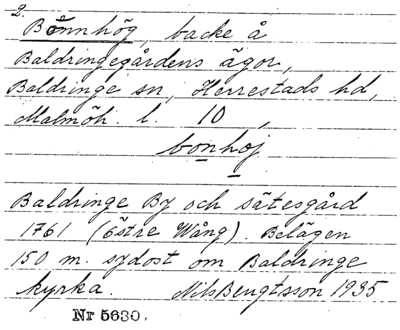 2.
Bönnhög, backe å
Baldringegårdens ägor,
Baldringe sn, Herrestads hd,
Malmöh. l. 10,
bonhoj
Baldringe By och sätesgård
1761 (Östre Wång). Belägen
150 m. sydost om Baldringe
kyrka. Nils Bengtsson 1935
Nr 5630.